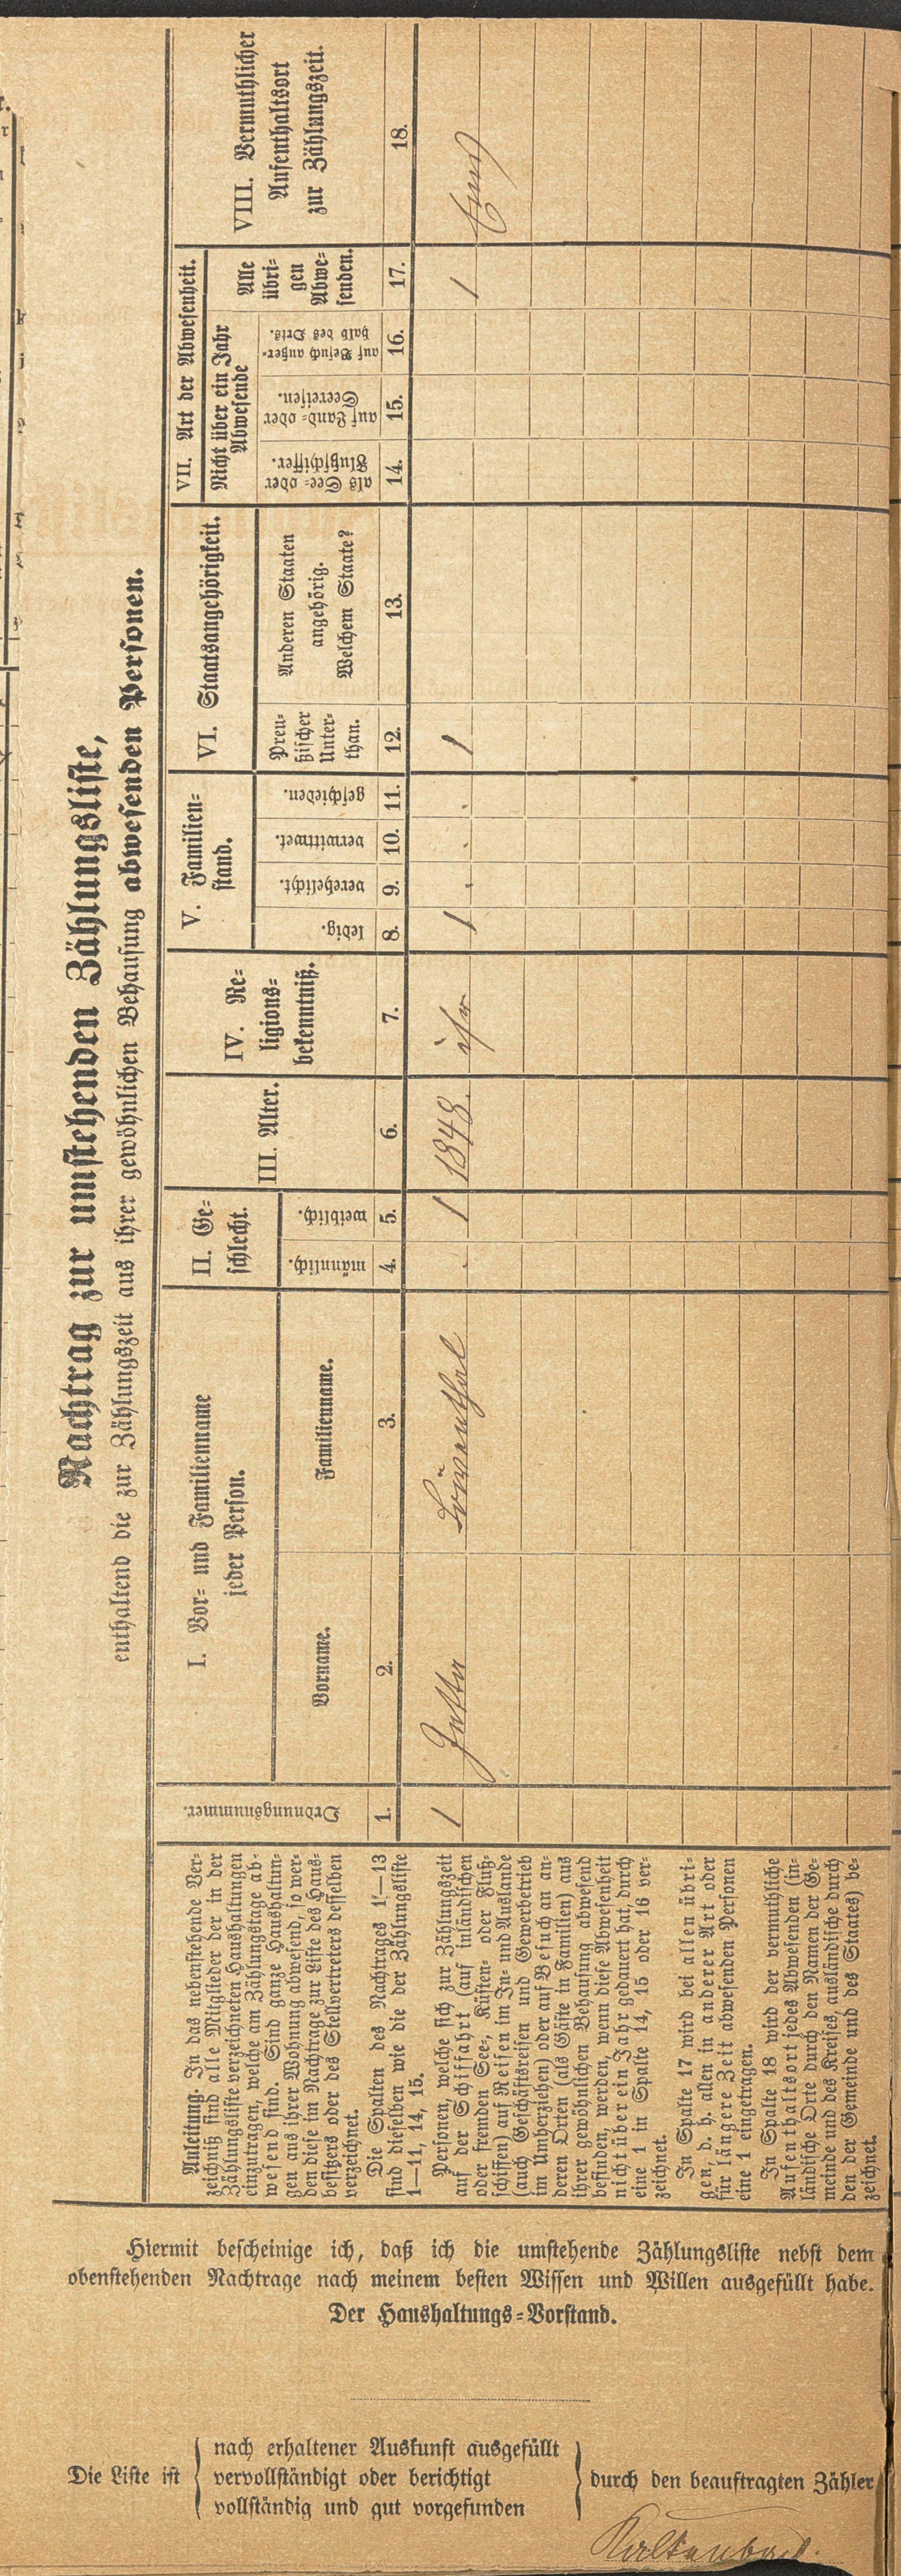 Nachtrag zur umstehenden Zählungsliste,
enthaltend die zur Zählungszeit aus ihrer gewöhnlichen Behausung abwesenden Personen.
Anleitung. In das nebenstehende Ver-
zeichniß sind alle Mitglieder der in der
Zählungsliste verzeichneten Haushaltungen
einzutragen, welche am Zählungstage ab-
wesend sind. Sind ganze Haushaltun-
gen aus ihrer Wohnung abwesend, so wer-
den diese im Nachtrage zur Liste des Haus-
besitzers oder des Stellvertreters desselben
verzeichnet.
Die Spalten des Nachtrages 1—13
sind dieselben wie die der Zählungsliste
1—11, 14, 15.
Personen, welche sich zur Zählungszeit
auf der Schiffahrt (auf inländischen
oder fremden See-, Küsten- oder Fluß-
schiffen) auf Reisen im In- und Auslande
(auch Geschäftsreisen und Gewerbetrieb
im Umherziehen) oder auf Besuch an an-
deren Orten (als Gäste in Familien) aus
ihrer gewöhnlichen Behausung abwesend
befinden, werden, wenn diese Abwesenheit
nicht über ein Jahr gedauert hat, durch
eine 1 in Spalte 14, 15 oder 16 ver-
zeichnet.
In Spalte 17 wird bei allen übri-
gen, d. h. allen in anderer Art oder
für längere Zeit abwesenden Personen
eine 1 eingetragen.
In Spalte 18 wird der vermuthliche
Aufenthaltsort jedes Abwesenden (in-
ländische Orte durch den Namen der Ge-
meinde und des Kreises, ausländische durch
den der Gemeinde und des Staates) be-
zeichnet.
Ordnungsnummer.
I. Vor- und Familienname
jeder Person.
Vorname.
Familienname.
II. Ge-
schlecht.
männlich.
weiblich.
III. Alter.
IV. Re-
ligions-
bekenntniß.
V. Familien-
stand.
ledig.
verehelicht.
verwittwet.
geschieden.
VI. Staatsangehörigkeit.
Preu-
ßischer
Unter-
than.
Anderen Staaten
angehörig.
Welchem Staate?
VII. Art der Abwesenheit.
Nicht über ein Jahr
Abwesende
als See- oder
Flußschiffer.
auf Land- oder
Seereisen.
auf Besuch außer-
halb des Orts.
Alle
übri-
gen
Abwe-
senden.
VIII. Vermuthlicher
Aufenthaltsort
zur Zählungszeit.
1. 2. 3. 4. 5. 6. 7. 8. 9. 10. 11. 12. 13. 14. 15. 16. 17. 18.
1 Jutta Löwenthal . 1 1848. isr 1 . . . 1 1 Ems
Hiermit bescheinige ich, daß ich die umstehende Zählungsliste nebst dem
obenstehenden Nachtrage nach meinem besten Wissen und Willen ausgefüllt habe.
Der Haushaltungs-Vorstand.
Die Liste ist
nach erhaltener Auskunft ausgefüllt
vervollständigt oder berichtigt
vollständig und gut vorgefunden
durch den beauftragten Zähler
Kaltenbach.